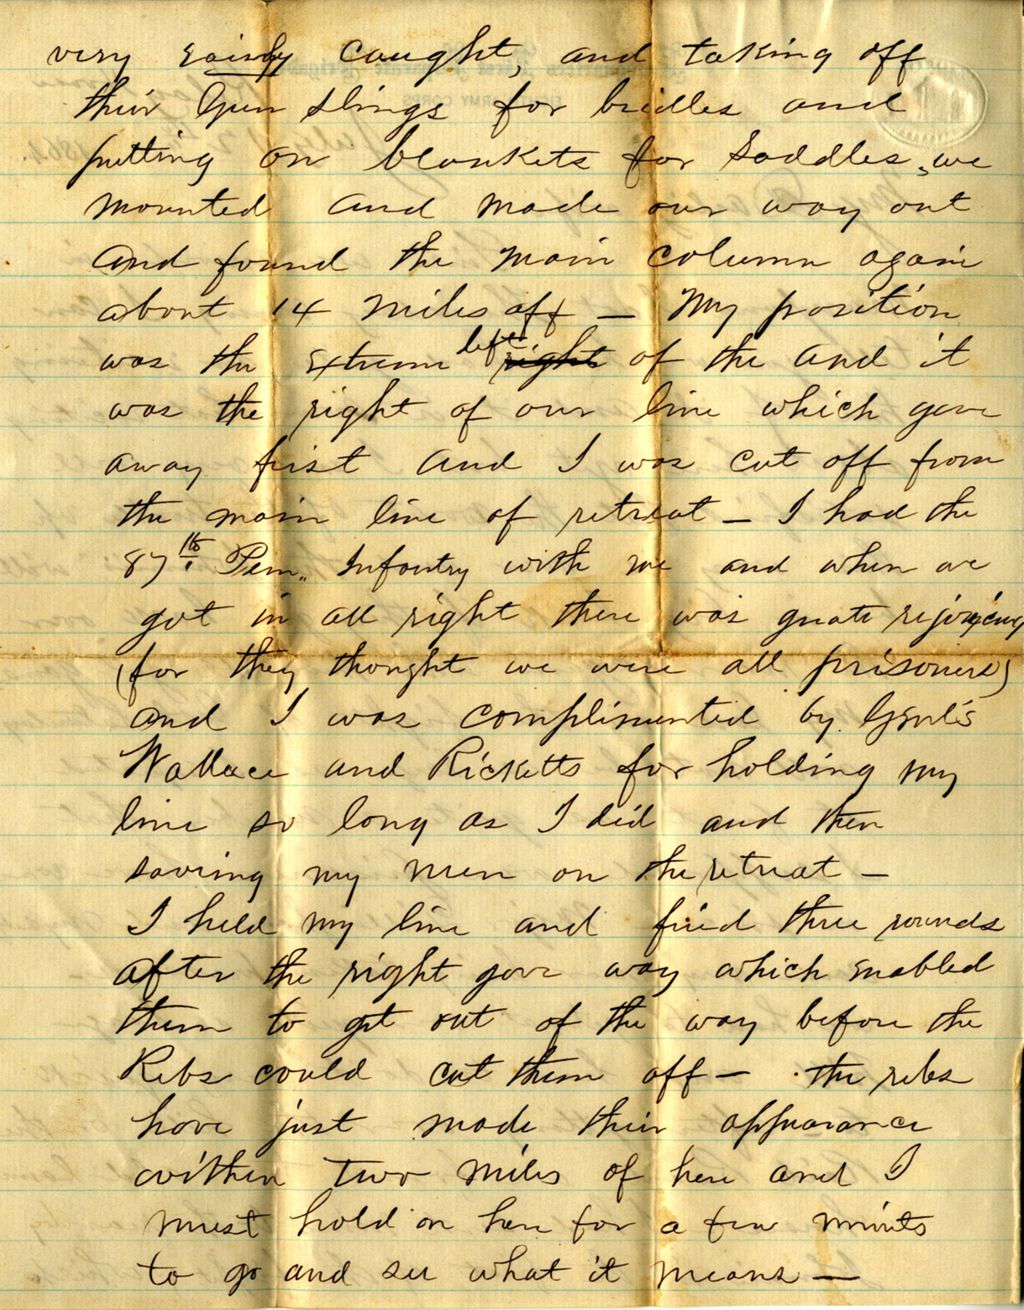 very easily caught, and taking off
their Gun slings for bridles and
putting on blankets for Saddles, we
mounted and made our way out
and found the main column again
about 14 miles off — My position
was the extreme left right of the and it
was the right of our line which gave
away first and I was cut off from
the main line of retreat — I had the
87th Penn. Infantry with me and when we
got in all right there was great rejoicing
(for they thought we were all prisoners)
and I was complimented by Genl's
Wallace and Ricketts for holding my
line so long as I did and then
saving my men on the retreat —
I held my line and fired three rounds
after the right gave way which enabled
them to get out of the way before the
Rebs could cut them off — the rebs
have just made their appearance
within two miles of here and I
must hold on here for a few minits
to go and see what it means —